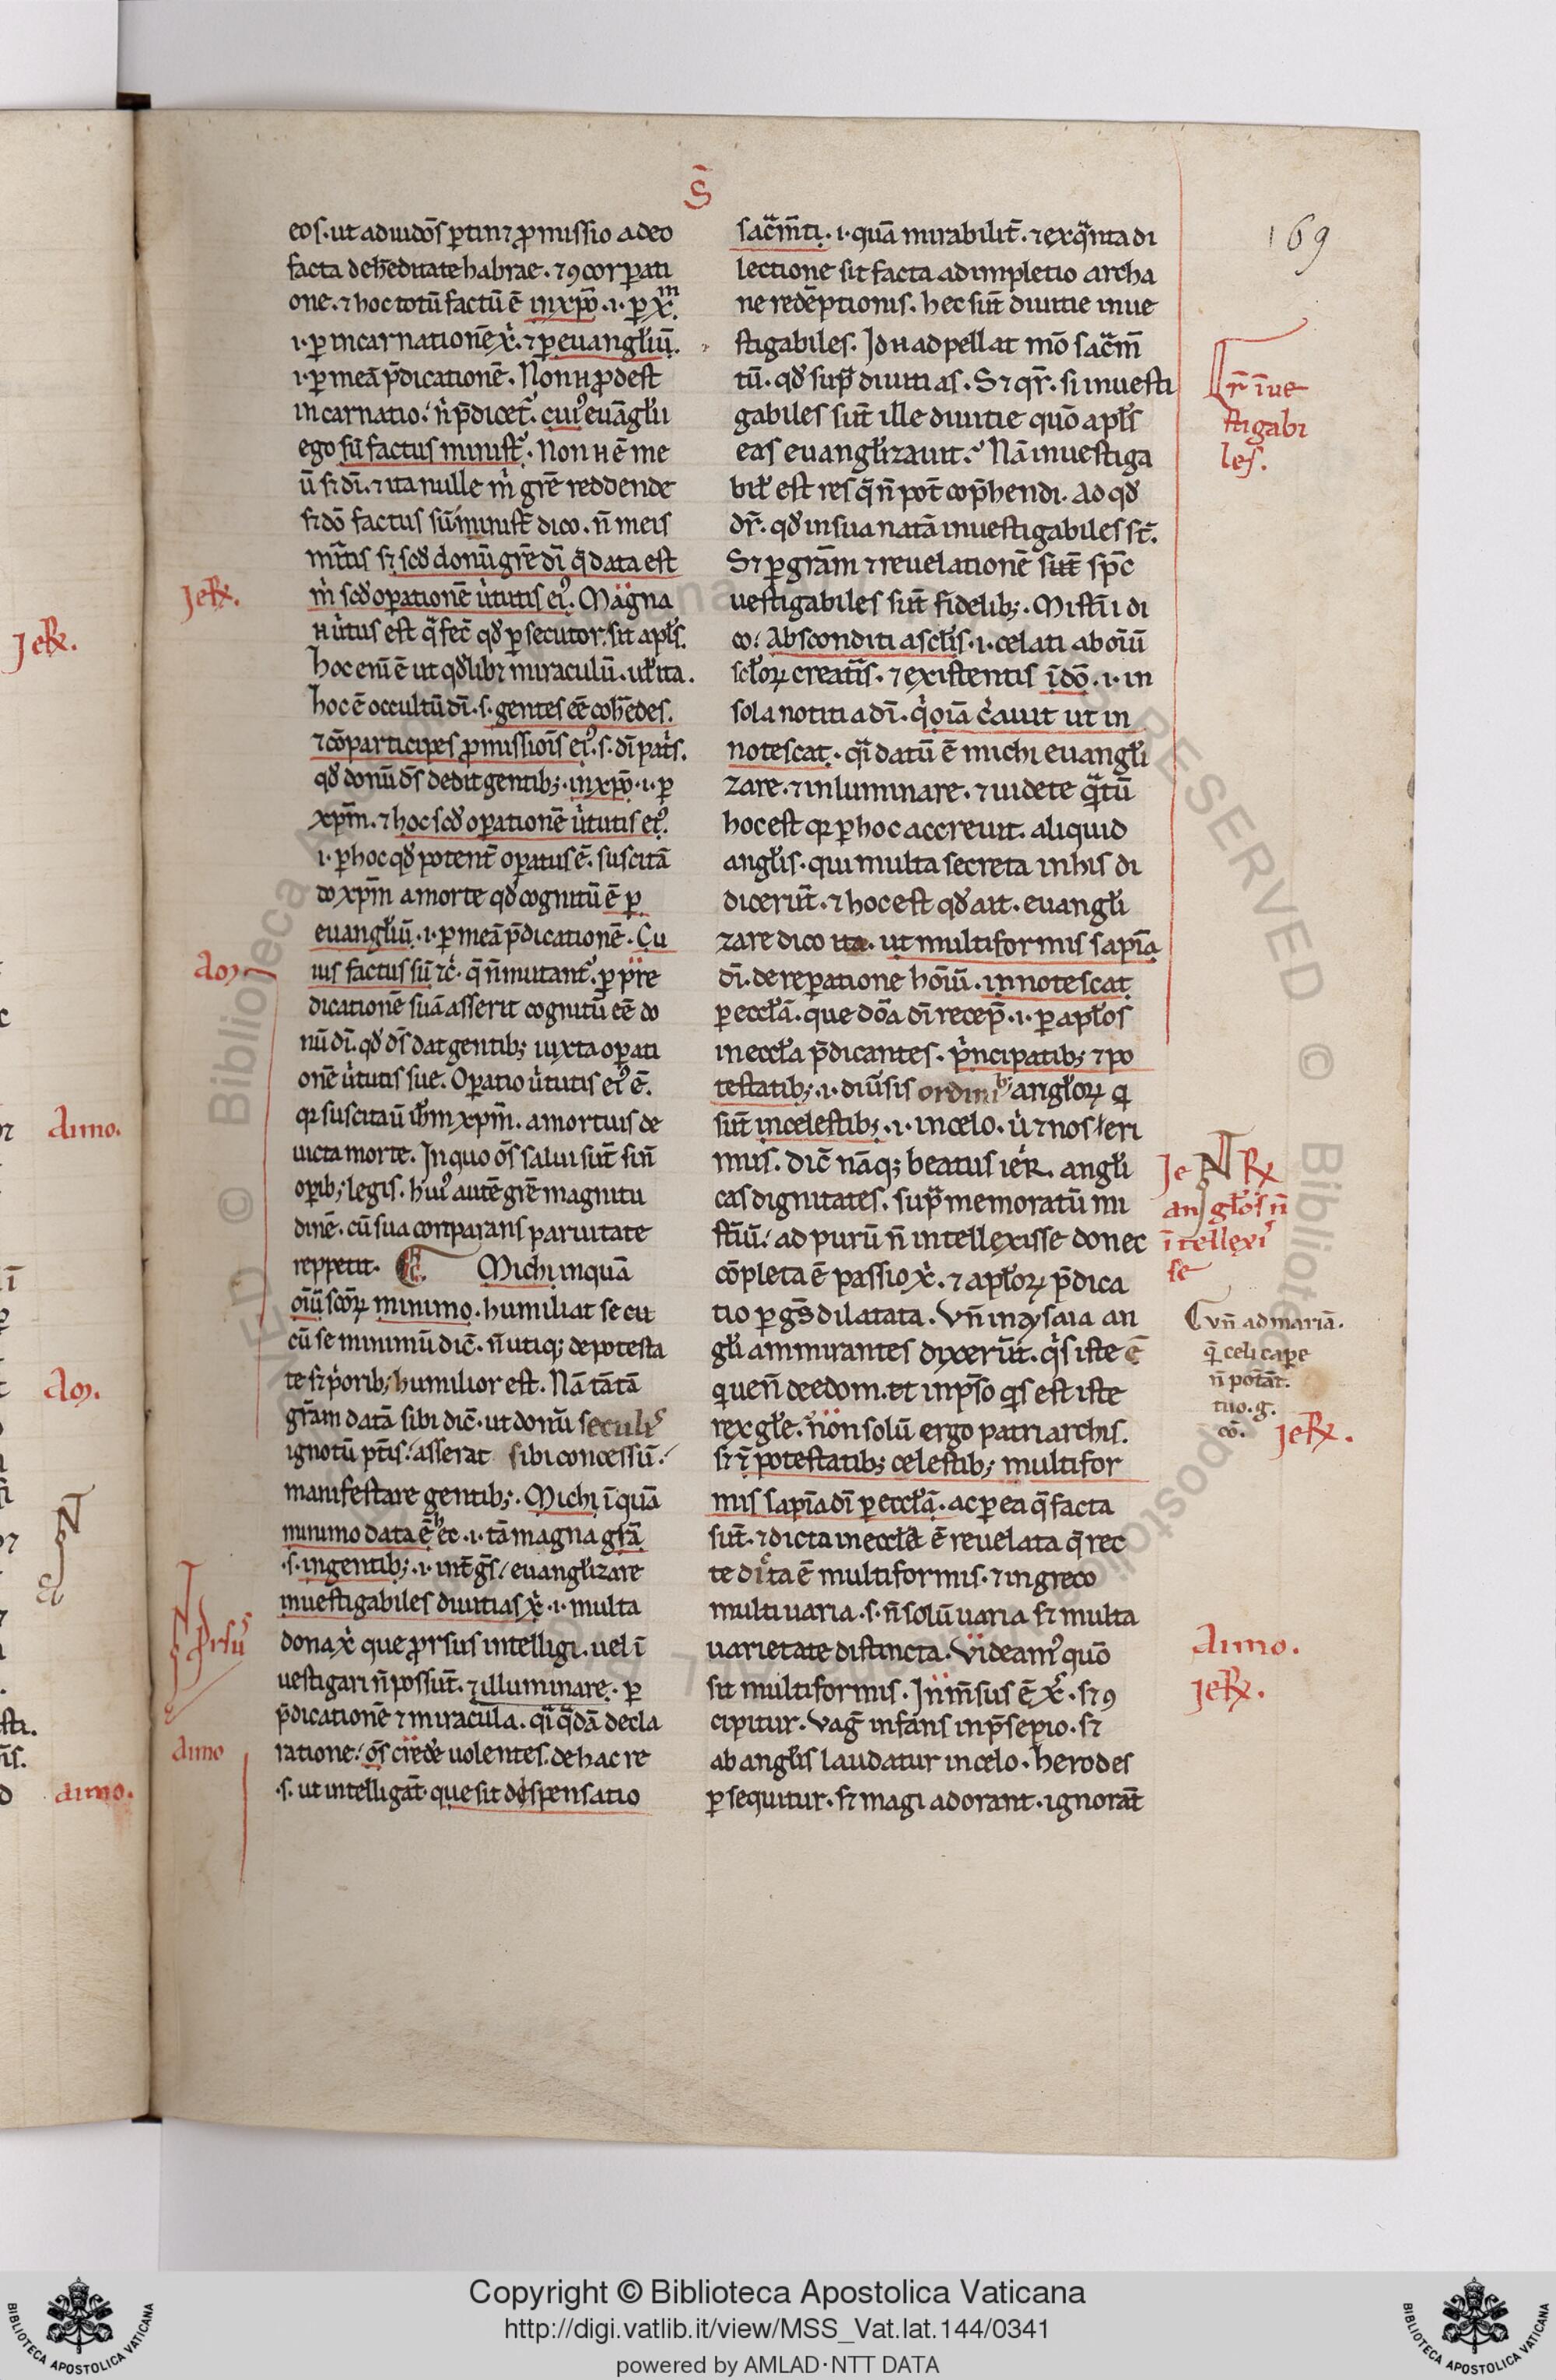 S̄
169
eos. ut ad iudos̄ ꝑtin⁊ ꝓmissio a deo
facta de h̄editate habrae. ⁊ ꝯcorꝑati
one. ⁊ hoc totū factū ē in xp̄o .i. ꝑ x̄m
.i. ꝑ incarnationē x̄. ⁊ ꝑ euangl̄iū.
.i. ꝑ meā p̄dicationē. Non н ꝓdest
incarnatio: n̄ p̄dicet̄. cuiꝰ euāgl̄ii
ego sū factus minist̄. Non н ē me
ū s; dī. ⁊ ita nulle m̄ gr̄e reddende
s; dō factus sū minist̄ dico. n̄ meis
mr̄itis s; scd̄ donū gr̄e dī q̄ data est
m̄ scd̄ oꝑationē ùtutis eiꝰ. Magna
н ùtus est q̄ fec̄ qd̄ ꝑsecutor sit apl̄s.
hoc eni ē ut qd̄lib; miraculū. ul̄ ita.
hoc ē occultū dī .s. gentes eē coh̄edes.
⁊ cōparticipes ꝓmissiōis eiꝰ .s. dī pat̄s.
qd̄ donū ds̄ dedit gentib; in xp̄o .i. ꝑ
xp̄m. ⁊ hoc scd̄ oꝑationē ùtutis eiꝰ.
.i. ꝑ hoc qd̄ potent̄ oꝑatus ē. suscitā
do xp̄m a morte qd̄ cognitū ē ꝑ
euangl̄iū .i. ꝑ meā p̄dicationē. Cu
ius factus sū ⁊c̄. q̄ n̄ mutant̄. ꝑ p̄re
dicationē suā asserit cognitū eē do
nū dī. qd̄ ds̄ dat gentib; iuxta oꝑati
onē ùtutis sue. Oꝑatio ùtutis eiꝰ ē.
qꝛ suscitaū ih̄m xp̄m. a mortuis de
uicta morte. In quo os̄ salui sūt sin̄
oꝑib; legis. huiꝰ autē gr̄e magnitu
dinē. cū sua conparans paruitate
reppetit. Michi inquā
oīū scōꝝ minimo. humiliat se cu
cū se minimū dic̄. n̄ utiq; de potesta
te s; p̄orib; humilior est. Nā tātā
gr̄am datā sibi dic̄. ut donū seculiꝰ
ignotū p̄tis: asserat sibi concessū.
manifestare gentib;. Michi īquā
minimo data ē hec .i. tā magna gr̄a
.s. in gentib; .i. int̄ gs̄/ euangl̄izare
inuestigabiles diuitias x̄ .i. multa
dona x̄ que ꝓrsus intelligi. uel ī
uestigari n̄ possūt. ⁊ illuminare. ꝑ
p̄dicationē ⁊ miracula. qi q̄dā decla
ratione: os̄ crede uolentes. de hac re
.s. ut intelligāt que sit dispensatio
sac̄mti. .i. quā mirabilit̄. ⁊ ex q̄nta di
lectione sit facta adimpletio archa
ne redēptionis. hec sūt diuitie inue
stigabiles. Id н adpellat mō sac̄m̄
tū. qd̄ sup̄ diuitias. S; qr̄. si inuesti
gabiles sūt ille diuitie quō apl̄s
eas euangl̄izauit? Nā inuestiga
bil̄ est res q̄ n̄ pot̄ cōp̄hendi. Ad qd̄
dr̄. qd̄ in sua natā inuestigabiles st̄.
S; ꝑ grām ⁊ reuelationē sūt sp̄c
uestigabiles sūt fidelib;. Mist̄ii di
co: Absconditi a sc̄lis .i. celati ab oīū
scl̄oꝝ creatīs. ⁊ existentis ī dō .i. in
sola notitia dī. q̇ oīa c̄auit ut in
notescat. qi datū ē michi euangl̄i
zare. ⁊ inluminare. ⁊ uidete q̄tū
hoc est qꝛ ꝑ hoc accreuit aliquid
angl̄is. qui multa secreta in his di
dicerūt. ⁊ hoc est qd̄ ait. euangl̄i
zare dico ita. ut multiformis sapīa
dī. de reꝑatione hōiū. innotescat
ꝑ eccl̄ā. que dōa dī recep̄ .i. ꝑ apl̄os
in eccl̄a p̄dicantes. p̄ncipatib; ⁊ po
testatib; .i. diùsis ordinib; angl̄oꝝ q
sūt in celestib; .i. in celo. ù ⁊ nos eri
mus. dic̄ nāq; beatus ier̄. angl̄i
cas dignitates. sup̄ memoratū mi
st̄iū: ad purū n̄ intellexisse donec
cōpleta ē passio x̄. ⁊ apl̄oꝝ p̄dica
tio ꝑ gs̄ dilatata. Vn̄ in ysaia an
gl̄i ammirantes dixerūt. q̇s iste ē
qui uen̄ de edom. et in ps̄o q̇s est iste
rex gl̄e. non solū ergo patriarchis.
s; ī potestatib; celestib; multifor
mis sapīa dī ꝑ eccl̄ā. ac ꝑ ea q̄ facta
sūt. ⁊ dicta in eccl̄a ē reuelata q̄ rec
te dicta ē multiformis. ⁊ in greco
multiuaria .s. n̄ solū uaria s; multa
uarietate distincta. Videamꝰ quō
sit multiformis. Inm̄sus ē x̄. s; ꝯ
cipitur. Vag̅ infans in p̄sepio. s;
ab angl̄is laudatur in celo. herodes
ꝑsequitur. s; magi adorant. ignorāt
qr̄ īue
stigabi
les.
Je N ℞
angl̄os n̄
ītellexiꝰ
se
vn̄ ad mariā.
q̄ celi caꝑe
n̄ potāt.
tuo. g.
cō.
Je℞.
Aimo.
Je℞.
Je℞.
ꝓrsuꝰ
Aimo
Je℞.
Aimo.
Aimo.
Copyright © Biblioteca Apostolica Vaticana
http://digi.vatlib.it/view/MSS_Vat.lat.144/0341
powered by AMLAD·NTT DATA
BIBLIOTECA APOSTOLICA VATICANA
BIBLIOTECA APOSTOLICA VATICANA